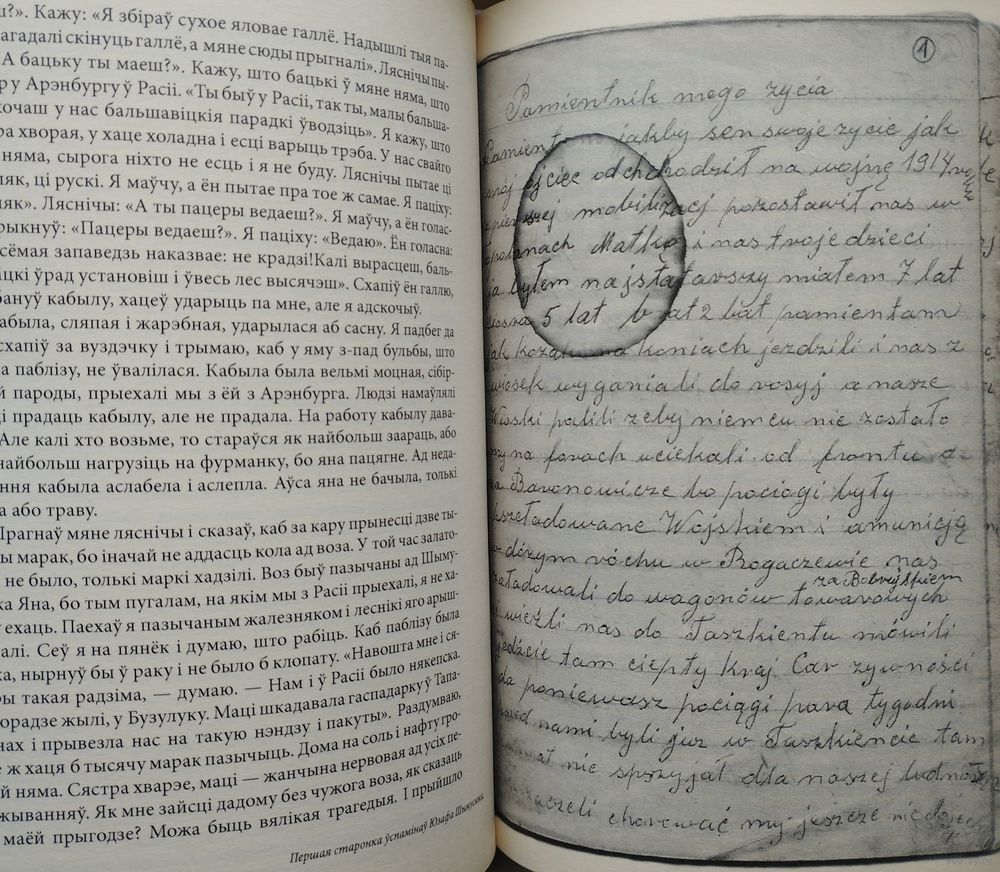 ш?». Кажу: «Я збіраў сухое яловае галлё. Надышлі тыя па-
агадалі скінуць галлё, а мяне сюды прыгналі». Ляснічы пы-
«А бацьку ты маеш?». Кажу, што бацькі ў мяне няма, што
р у Арэнбургу ў Расіі. «Ты быў у Расіі, так ты, малы бальша-
хочаш у нас бальшавіцкія парадкі ўводзіць». Я кажу, што
ра хворая, у хаце холадна і есці варыць трэба. У нас свайго
няма, сырога ніхто не есць і я не буду. Ляснічы пытае ці
ляк, ці рускі. Я маўчу, а ён пытае пра тое ж самае. Я паціху:
ляк». Ляснічы: «А ты пацеры ведаеш?». Я маўчу, а ён голас-
рыкнуў: «Пацеры ведаеш?». Я паціху: «Ведаю». Ён голасна:
сёмая запаведзь наказвае: не крадзі!Калі вырасцеш, баль-
іцкі ўрад установіш і ўвесь лес высячэш». Схапіў ён галлю,
бануў кабылу, хацеў ударыць па мне, але я адскочыў.
абыла, сляпая і жарэбная, ударылася аб сасну. Я падбег да
схапіў за вуздэчку і трымаю, каб у яму з-пад бульбы, што
а паблізу, не ўвалілася. Кабыла была вельмі моцная, сібір-
й пароды, прыехалі мы з ёй з Арэнбурга. Людзі намаўлялі
і прадаць кабылу, але не прадала. На работу кабылу дава-
Але калі хто возьме, то стараўся як найбольш заараць, або
найбольш нагрузіць на фурманку, бо яна пацягне. Ад неда-
ння кабыла аслабела і аслепла. Аўса яна не бачыла, толькі
а або траву.
Прагнаў мяне ляснічы і сказаў, каб за кару прынесці дзве ты-
ы марак, бо іначай не аддасць кола ад воза. У той час залато-
не было, толькі маркі хадзілі. Воз быў пазычаны ад Шыму-
ка Яна, бо тым пугалам, на якім мы з Расіі прыехалі, я не ха-
у ехаць. Паехаў я пазычаным жалезняком і леснікі яго арыш-
алі. Сеў я на пянёк і думаю, што рабіць. Каб паблізу была
ка, нырнуў бы ў раку і не было б клопату. «Навошта мне і ся-
ры такая радзіма, — думаю. — Нам і ў Расіі было някепска.
орадзе жылі, у Бузулуку. Маці шкадавала гаспадарку ў Тапа-
нах і прывезла нас на такую нэндзу і пакуты». Раздумваю,
е ж хаця б тысячу марак пазычыць. Дома на соль і нафту гро-
й няма. Сястра хварэе, маці — жанчына нервовая ад усіх пе-
жыванняў. Як мне зайсці дадому без чужога воза, як сказаць
маёй прыгодзе? Можа быць вялікая трагедыя. І прыйшло
Першая старонка ўспамінаў Юзафа
1
Pamientnik mego życia
jakby sen swoje życie jak
mój ojciec odchodził na wojnę 1914
pierszej mobilizacj pozostawił nas w
Matko i nas troje dzieci
ja byłem najstarszy miałem 7 lat
5 lat brat 2 lat pamientam
jak kozaki na koniach jeździli i nas z
wiosek wyganiali do rosyj a nasze
Wioski palili żeby niemcu nie zostało
my na forach uciekali od frontu a
za Baronowicze bo pociągi były
przeładowane Wojskiem i amunicją
w dóżym róchu w Rogaczewie nas
za Bobrujskiem
załadowali do wagonów towarowych
i wieźli nas do Taszkientu mówili
jedźcie tam ciepły kraj Car żywności
da poniewasz pociągi parą tygodni
przed nami byli już w Taszkiencie tam
nie spszyjał dla naszej
zaczeli chorować my jeszcze nie